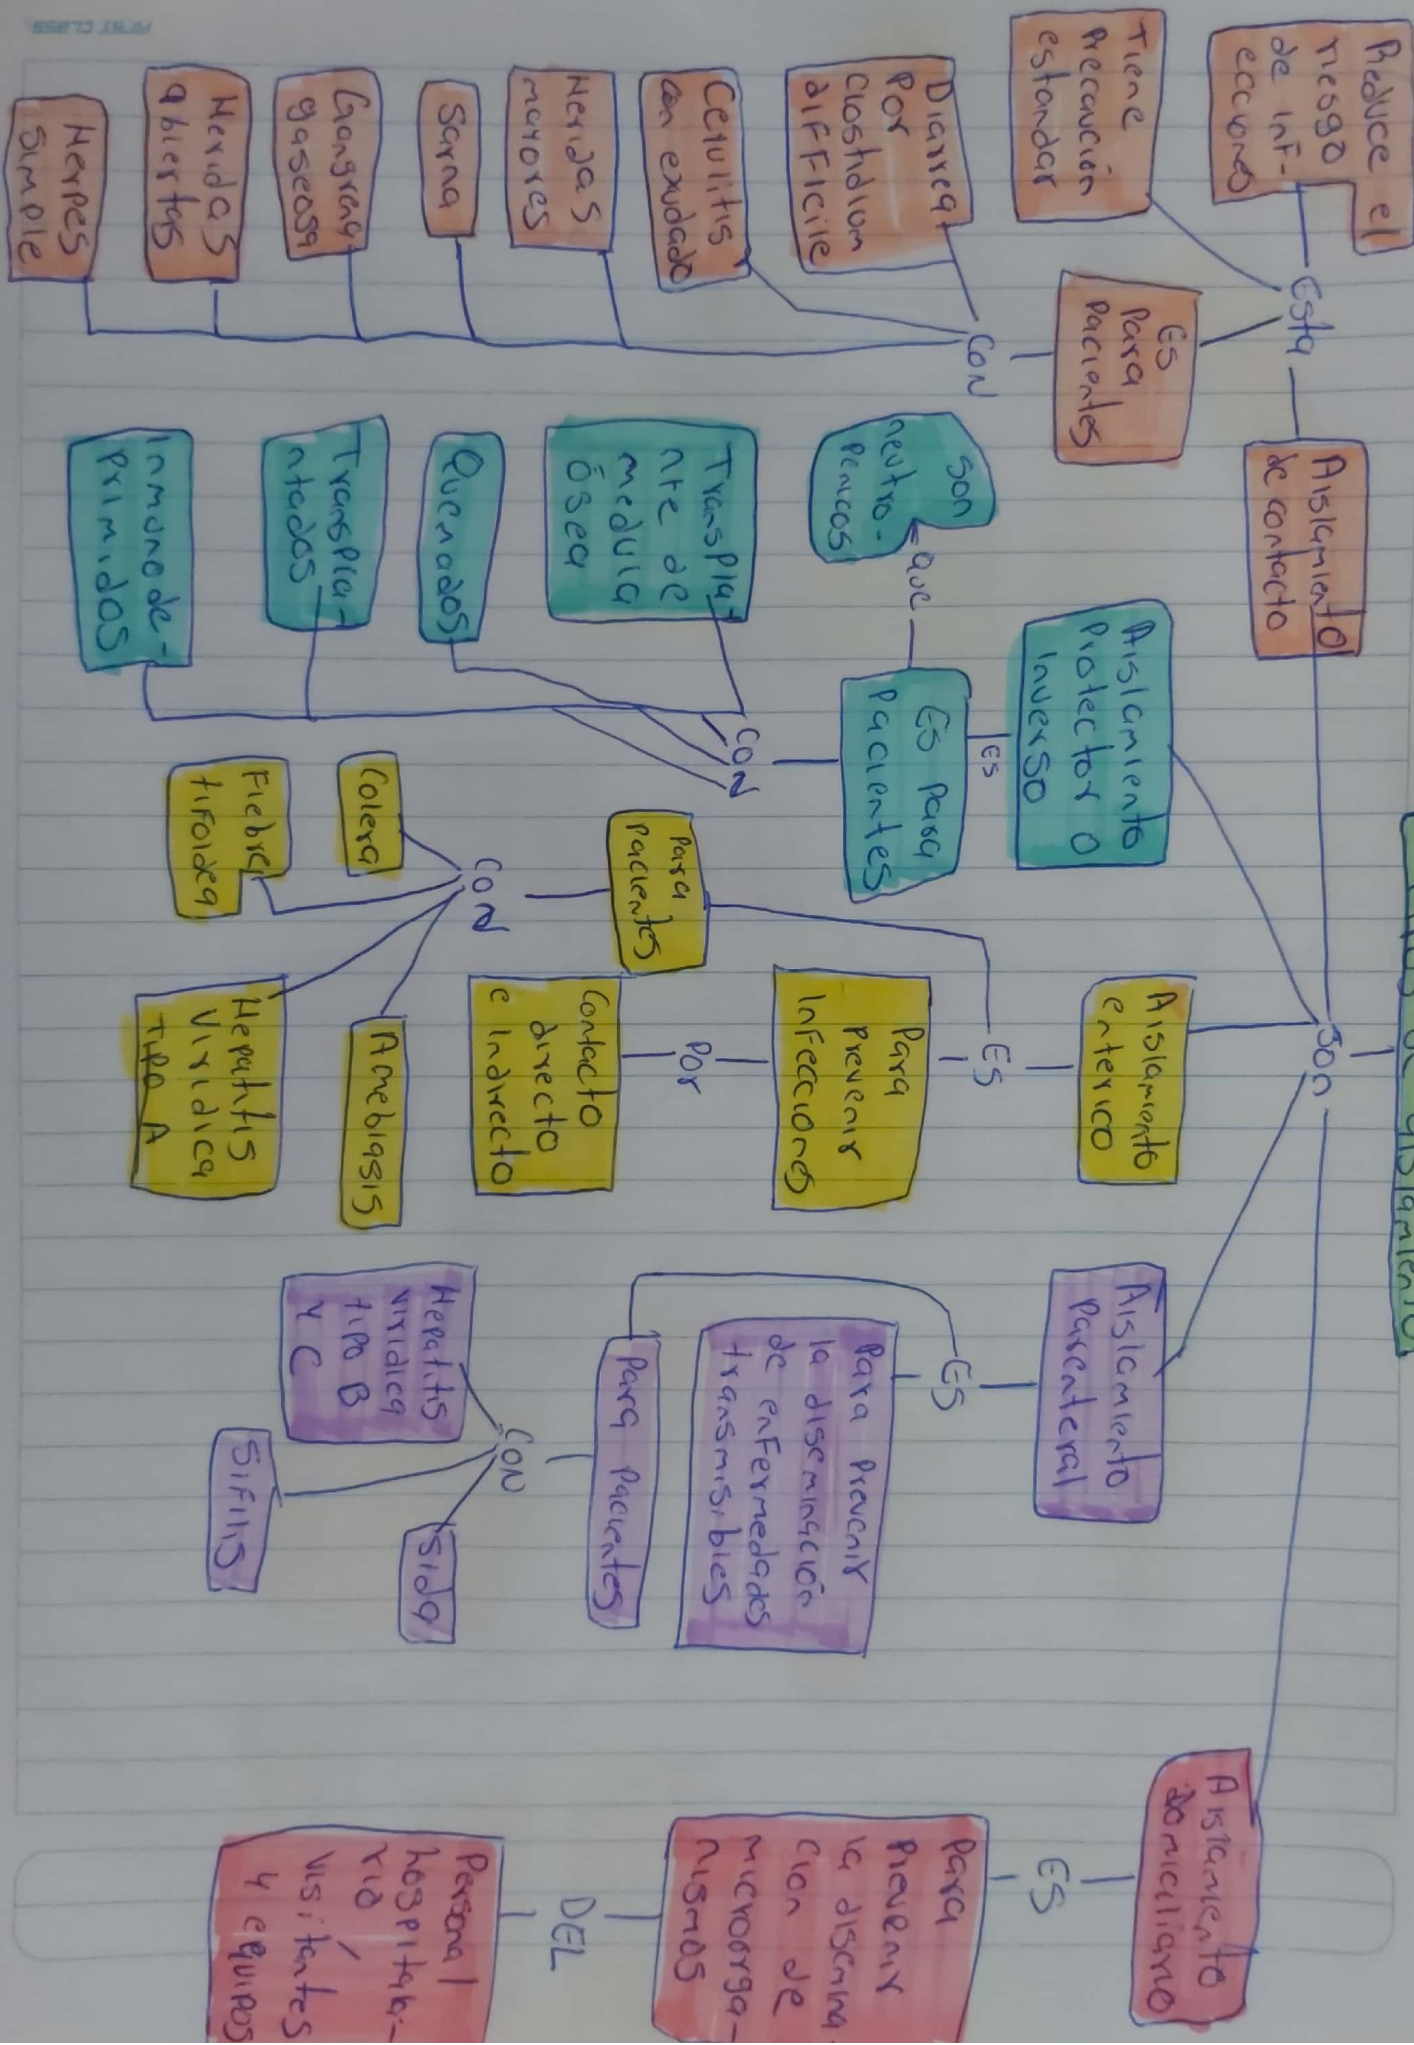 Tipos de aislamiento
Son
Aislamiento
de contacto
Esta
Reduce el
riesgo
de inf-
ecciones
Tiene
Precaución
estandar
Es
Para
Pacientes
CON
Diarrea
Por
Clostidium
difficile
Celulitis
con exudado
Heridas
mayores
Sarna
Gangrena
gaseosa
Heridas
abiertas
Herpes
Simple
Aislamiento
Protector o
inverso
ES
Es para
Pacientes
Que
Son
neutro-
Penicos
CON
Transpla-
nte de
medula
ósea
Quemados
Transpla-
ntados
inmunode-
Primidos
Aislamiento
enterico
ES
Para
Prevenir
infecciones
Por
Contacto
directo
e indirecto
Para
Pacientes
CON
Colera
Fiebre
tifoidea
Hepatitis
Viridica
Tipo A
Amebiasis
Aislamiento
Parenteral
ES
Para Prevenir
la diseminación
de enfermedados
transmisibles
Para Pacientes
CON
Hepatitis
viridica
tipo B
y C
Sifilis
Sida
Aislamiento
domiciliario
ES
Para
Prevenir
la disemina-
cion de
microorga-
nismos
DEL
Personal
hospitala-
rio,
visitantes
y equipos
FIRST CLASS